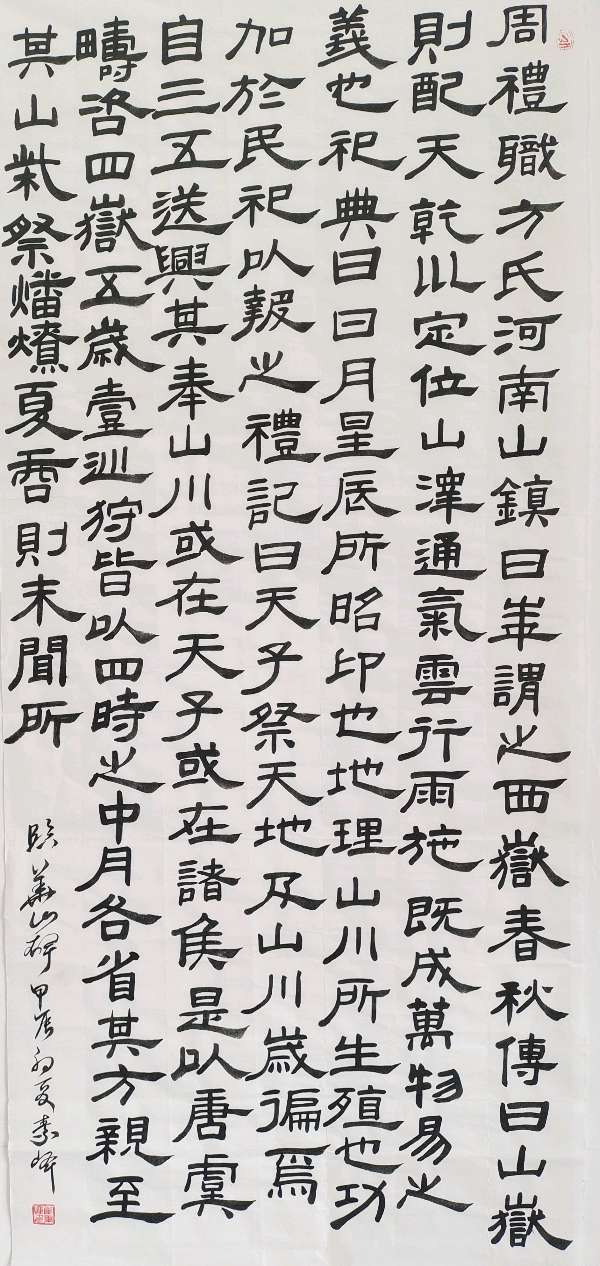 周禮職方氏河南山鎮曰崋謂之西嶽春秋傳曰山嶽
則配天乾以定位山澤通氣雲行雨施既成萬物易之
義也祀典曰日月星辰所昭卬也地理山川所生殖也功
加於民祀以報之禮記曰天子祭天地及山川歲徧焉
自三五迭興其奉山川或在天子或在諸侯是以唐虞
疇咨四嶽五歲壹巡狩皆以四時之中月各省其方親至
其山柴祭燔燎夏商則未聞所
臨華山碑甲辰初夏